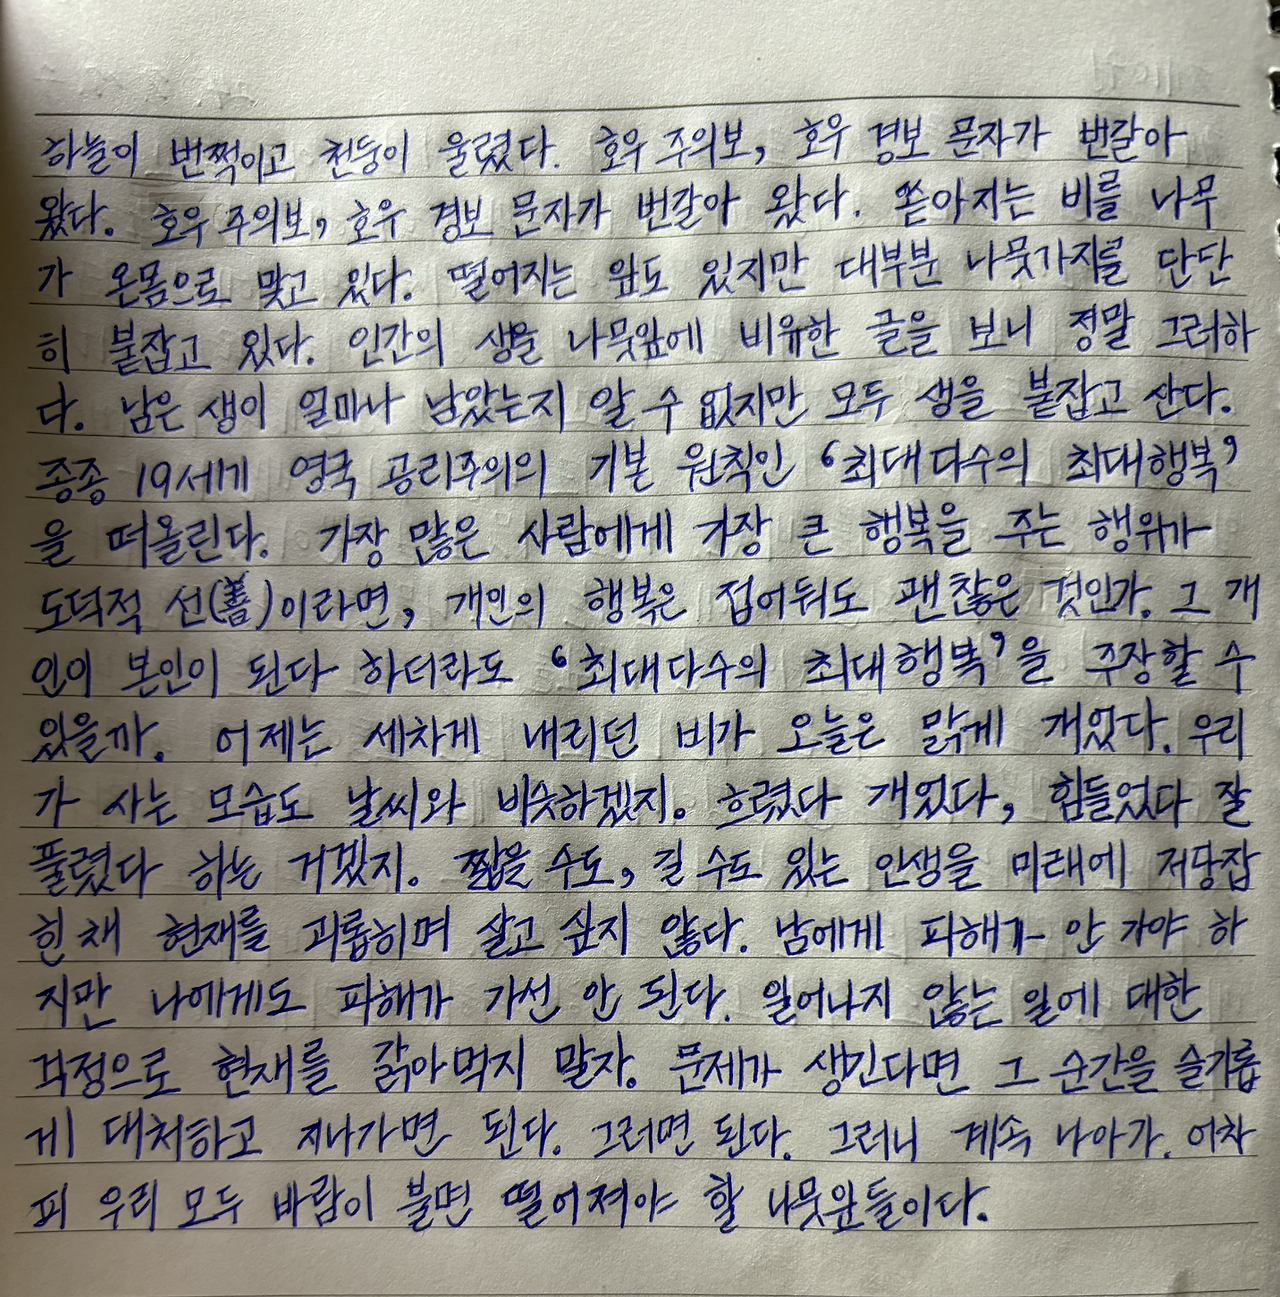 하늘이 번쩍이고 천둥이 울렸다. 호우 주의보, 호우 경보 문자가 번갈아
왔다. 호우 주의보, 호우 경보 문자가 번갈아 왔다. 쏟아지는 비를 나무
가 온몸으로 맞고 있다. 떨어지는 잎도 있지만 대부분 나뭇가지를 단단
히 붙잡고 있다. 인간의 생을 나뭇잎에 비유한 글을 보니 정말 그러하
다. 남은 생이 얼마나 남았는지 알 수 없지만 모두 생을 붙잡고 산다.
종종 19세기 영국 공리주의의 기본 원칙인 ‘최대다수의 최대행복’
을 떠올린다. 가장 많은 사람에게 가장 큰 행복을 주는 행위가
도덕적 선(善)이라면, 개인의 행복은 접어둬도 괜찮은 것인가. 그 개
인이 본인이 된다 하더라도 ‘최대다수의 최대행복’을 주장할 수
있을까. 어제는 세차게 내리던 비가 오늘은 맑게 개었다. 우리
가 사는 모습도 날씨와 비슷하겠지. 흐렸다 개었다, 힘들었다 잘
풀렸다 하는 거겠지. 짧을 수도, 길 수도 있는 인생을 미래에 저당잡
힌 채 현재를 괴롭히며 살고 싶지 않다. 남에게 피해가 안 가야 하
지만 나에게도 피해가 가선 안 된다. 일어나지 않는 일에 대한
걱정으로 현재를 갉아먹지 말자. 문제가 생긴다면 그 순간을 슬기롭
게 대처하고 지나가면 된다. 그러면 된다. 그러니 계속 나아가. 어차
피 우리 모두 바람이 불면 떨어져야 할 나뭇잎들이다.